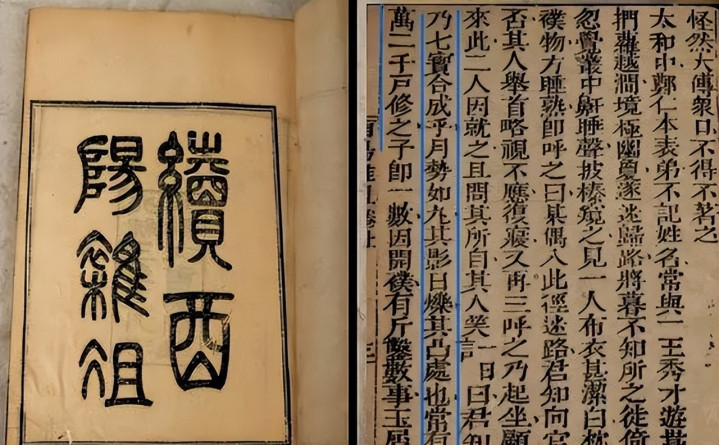 續酉
陽雜俎
怪然大傅衆口不得不著之
太和中鄭仁本表弟不記姓名常與一王秀才遊
捫蘿越澗境極幽夐遂迷歸路將暮不知所之徙倚
忽覺叢中鼾睡聲披榛窺之見一人布衣甚潔白枕
襆物方睡熟即呼之曰某偶入此徑迷路君知向官
否其人舉首略視不應復寢又再三呼之乃起坐顧
來此二人因就之且問其所自其人笑言曰君知
乃七寶合成乎月勢如丸其影日爍其凸處也常有
萬二千戸修之子即一數因開襆有斤鑿數事玉屑